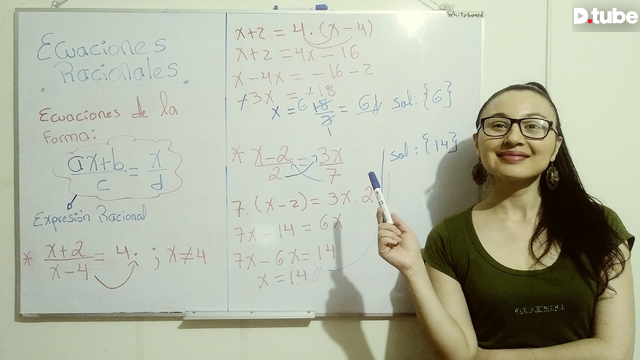 Ecuaciones
Racionales.
Ecuaciones de la
forma:
ax+b/c = x/d
Expresión Racional
* x+2/x-4 = 4. ; x≠4
x+2 = 4.(x-4)
x+2 = 4x-16
x-4x = -16-2
+3x = +18
x = 6 18/3 = 6// sol: {6}
1
* x-2/2 = 3x/7
sol: {14}
7.(x-2) = 3x.2
7x-14 = 6x
7x-6x = 14
x = 14
Whiteboard
D.tube